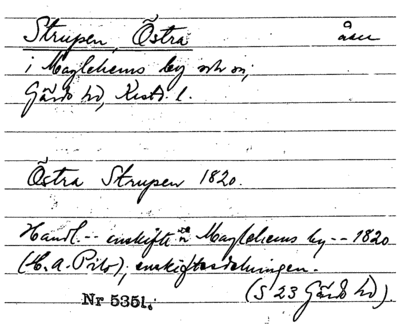 Strupen, Östra åker
i Maglehems by och sn,
Gärds hd, Krist. l.
Östra Strupen 1820.
Handl. -- enskifte å Maglehems by -- 1820
(H. A. Pihl); enskiftesdelningen.
(S 23 Gärds hd).
Nr 5351.